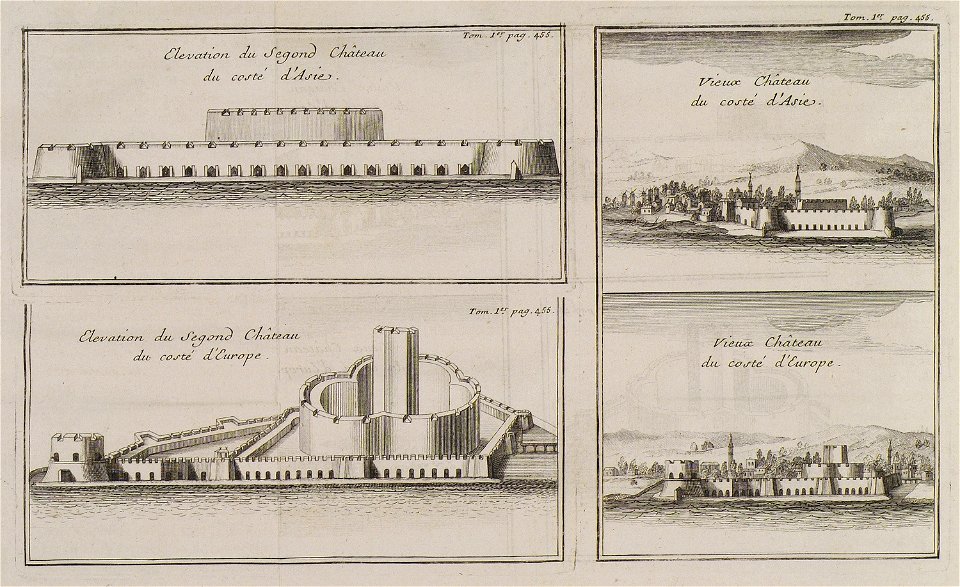 Tom. 1.er pag. 455.
Elevation du Segond Château
du costé d'Asie.
Tom. 1.er pag. 455.
Elevation du Segond Château
du costé d'Europe.
Tom. 1.er pag. 455.
Vieux Château
du costé d'Asie.
Vieux Château
du costé d'Europe.